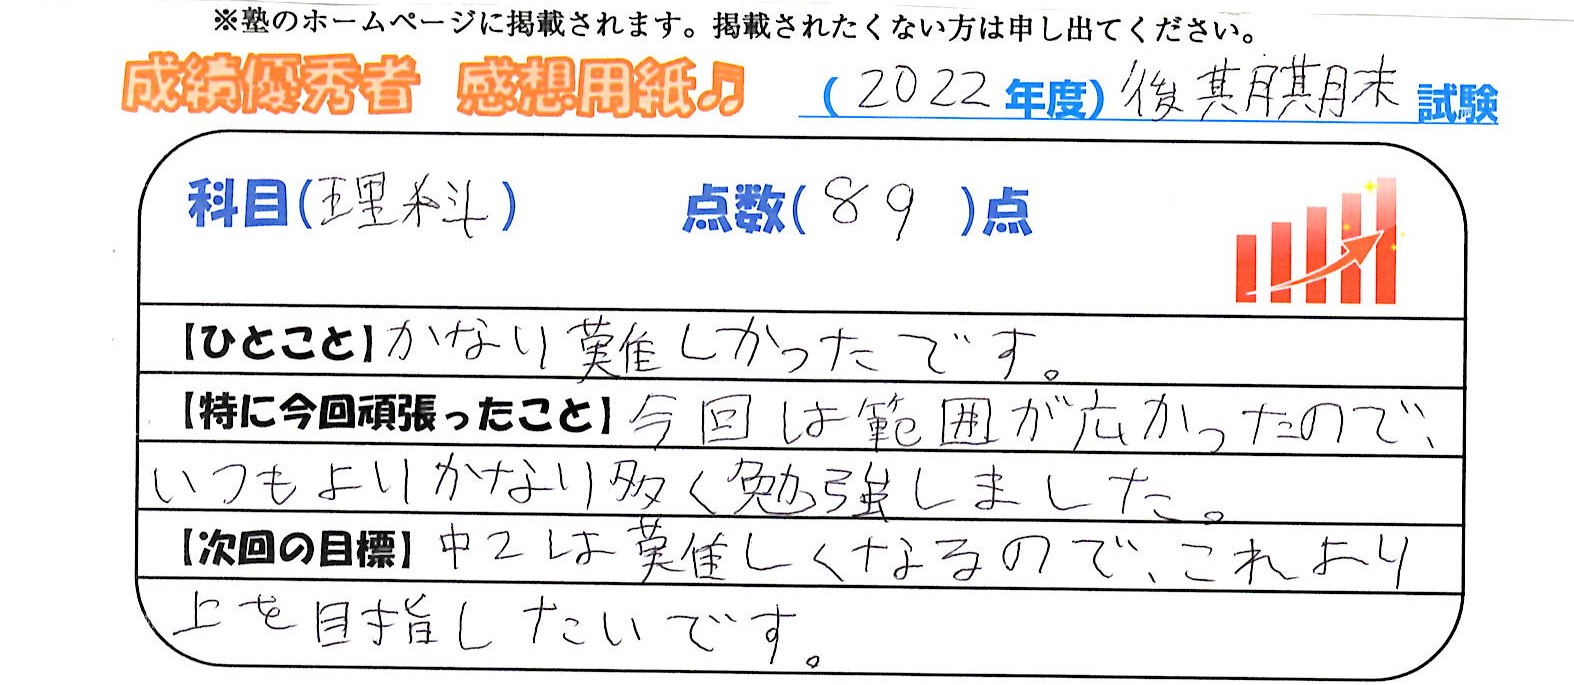 ※塾のホームページに掲載されます。掲載されたくない方は申し出てください。
成績優秀者 感想用紙♫ (2022年度)後期期末試験
科目(理科) 点数(89)点
【ひとこと】かなり難しかったです。
【特に今回頑張ったこと】今回は範囲が広かったので、
いつもよりかなり多く勉強しました。
【次回の目標】中2は難しくなるので、これより
上を目指したいです。